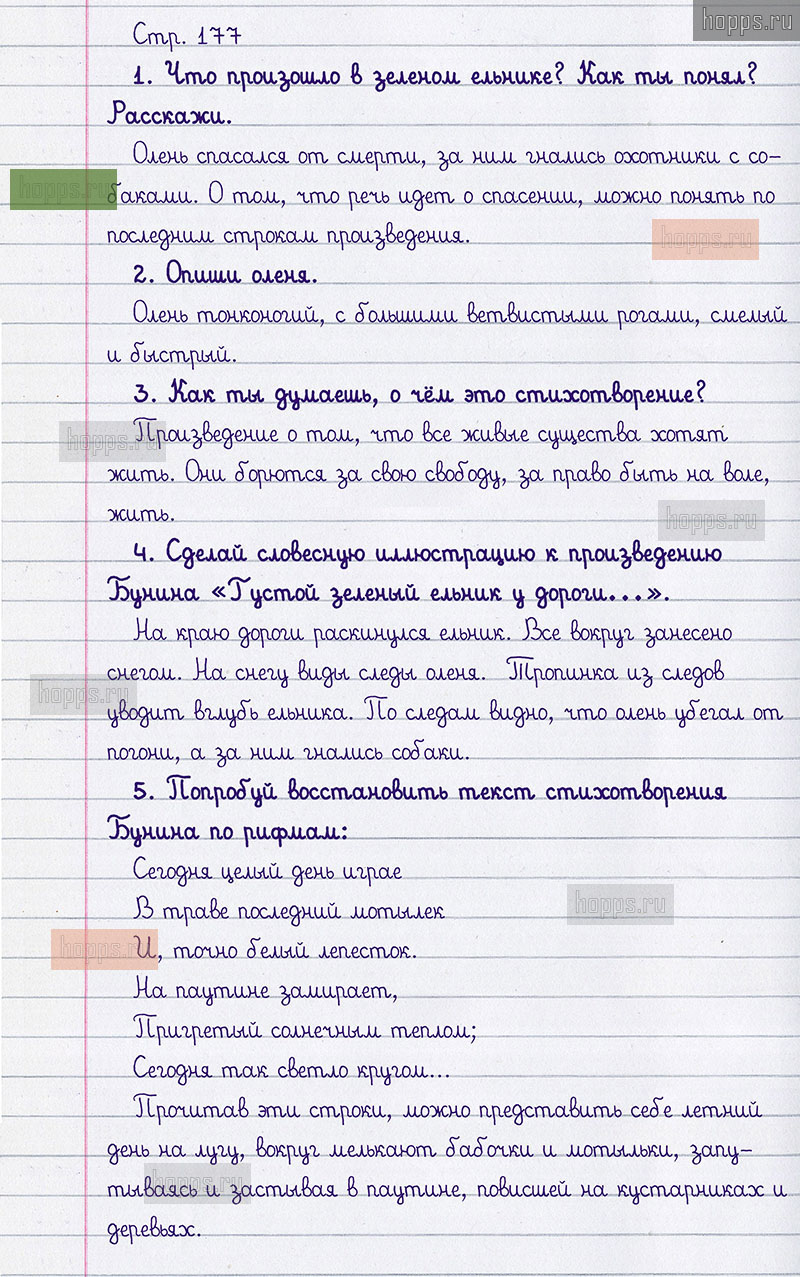 hopps.ru
Стр. 177
1. Что произошло в зеленом ельнике? Как ты понял?
Расскажи.
Олень спасался от смерти, за ним гнались охотники с со-
hopps.ru
баками. О том, что речь идет о спасении, можно понять по
последним строкам произведения.
hopps.ru
2. Опиши оленя.
Олень тонконогий, с большими ветвистыми рогами, смелый
и быстрый.
3. Как ты думаешь, о чём это стихотворение?
hopps.ru
Произведение о том, что все живые существа хотят
жить. Они борются за свою свободу, за право быть на воле,
жить.
hopps.ru
4. Сделай словесную иллюстрацию к произведению
Бунина «Густой зеленый ельник у дороги...».
На краю дороги раскинулся ельник. Все вокруг занесено
снегом. На снегу виды следы оленя. Тропинка из следов
hopps.ru
уводит вглубь ельника. По следам видно, что олень убегал от
погони, а за ним гнались собаки.
5. Попробуй восстановить текст стихотворения
Бунина по рифмам:
Сегодня целый день играе
В траве последний мотылек
hopps.ru
И, точно белый лепесток.
hopps.ru
На паутине замирает,
Пригретый солнечным теплом;
Сегодня так светло кругом...
Прочитав эти строки, можно представить себе летний
день на лугу, вокруг мелькают бабочки и мотыльки, запу-
hopps.ru
тываясь и застывая в паутине, повисшей на кустарниках и
деревьях.